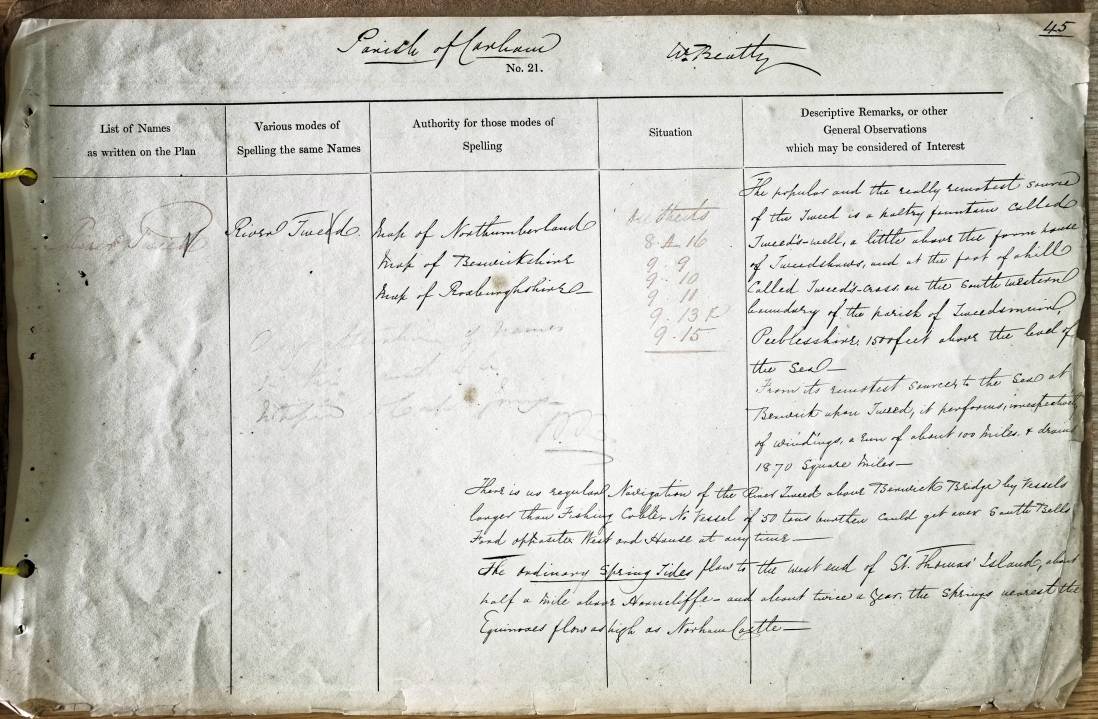 45
Parish of Carham
Wm. Beatty
No. 21.
List of Names
as written on the Plan
Various modes of
Spelling the same Names
Authority for those modes of
Spelling
Situation
Descriptive Remarks, or other
General Observations
which may be considered of Interest
River Tweed
River Tweed.
Map of Northumberland
Map of Berwickshire
Map of Roxburghshire
Sheets
8. 16
9. 9
9. 10
9. 11
9. 13
9. 15
of Names
The popular and the really remotest source
of the Tweed is a paltry fountain called
Tweed's-well, a little above the farm house
of Tweedshaws, and at the foot of a hill
Called Tweed's-cross, on the South western
boundary of the parish of Tweedsmuir,
Peeblesshire, 1500 feet above the level of
the Sea—
From its remotest sources to the Sea at
Berwick upon Tweed, it performs, irrespectively
of windings, a run of about 100 Miles. & drains
1870 Square Miles—
There is no regular Navigation of the River Tweed above Berwick Bridge by Vessels
larger than Fishing Cobles. No Vessel of 50 tons burthen could get over South Bells
Ford opposite West ord House at any time—
The ordinary Spring Tides flow to the west end of St. Thomas' Island, about
half a Mile above Horncliffe— and about twice a Year, the Springs nearest the
Equinoxes flow as high as Norham Castle—